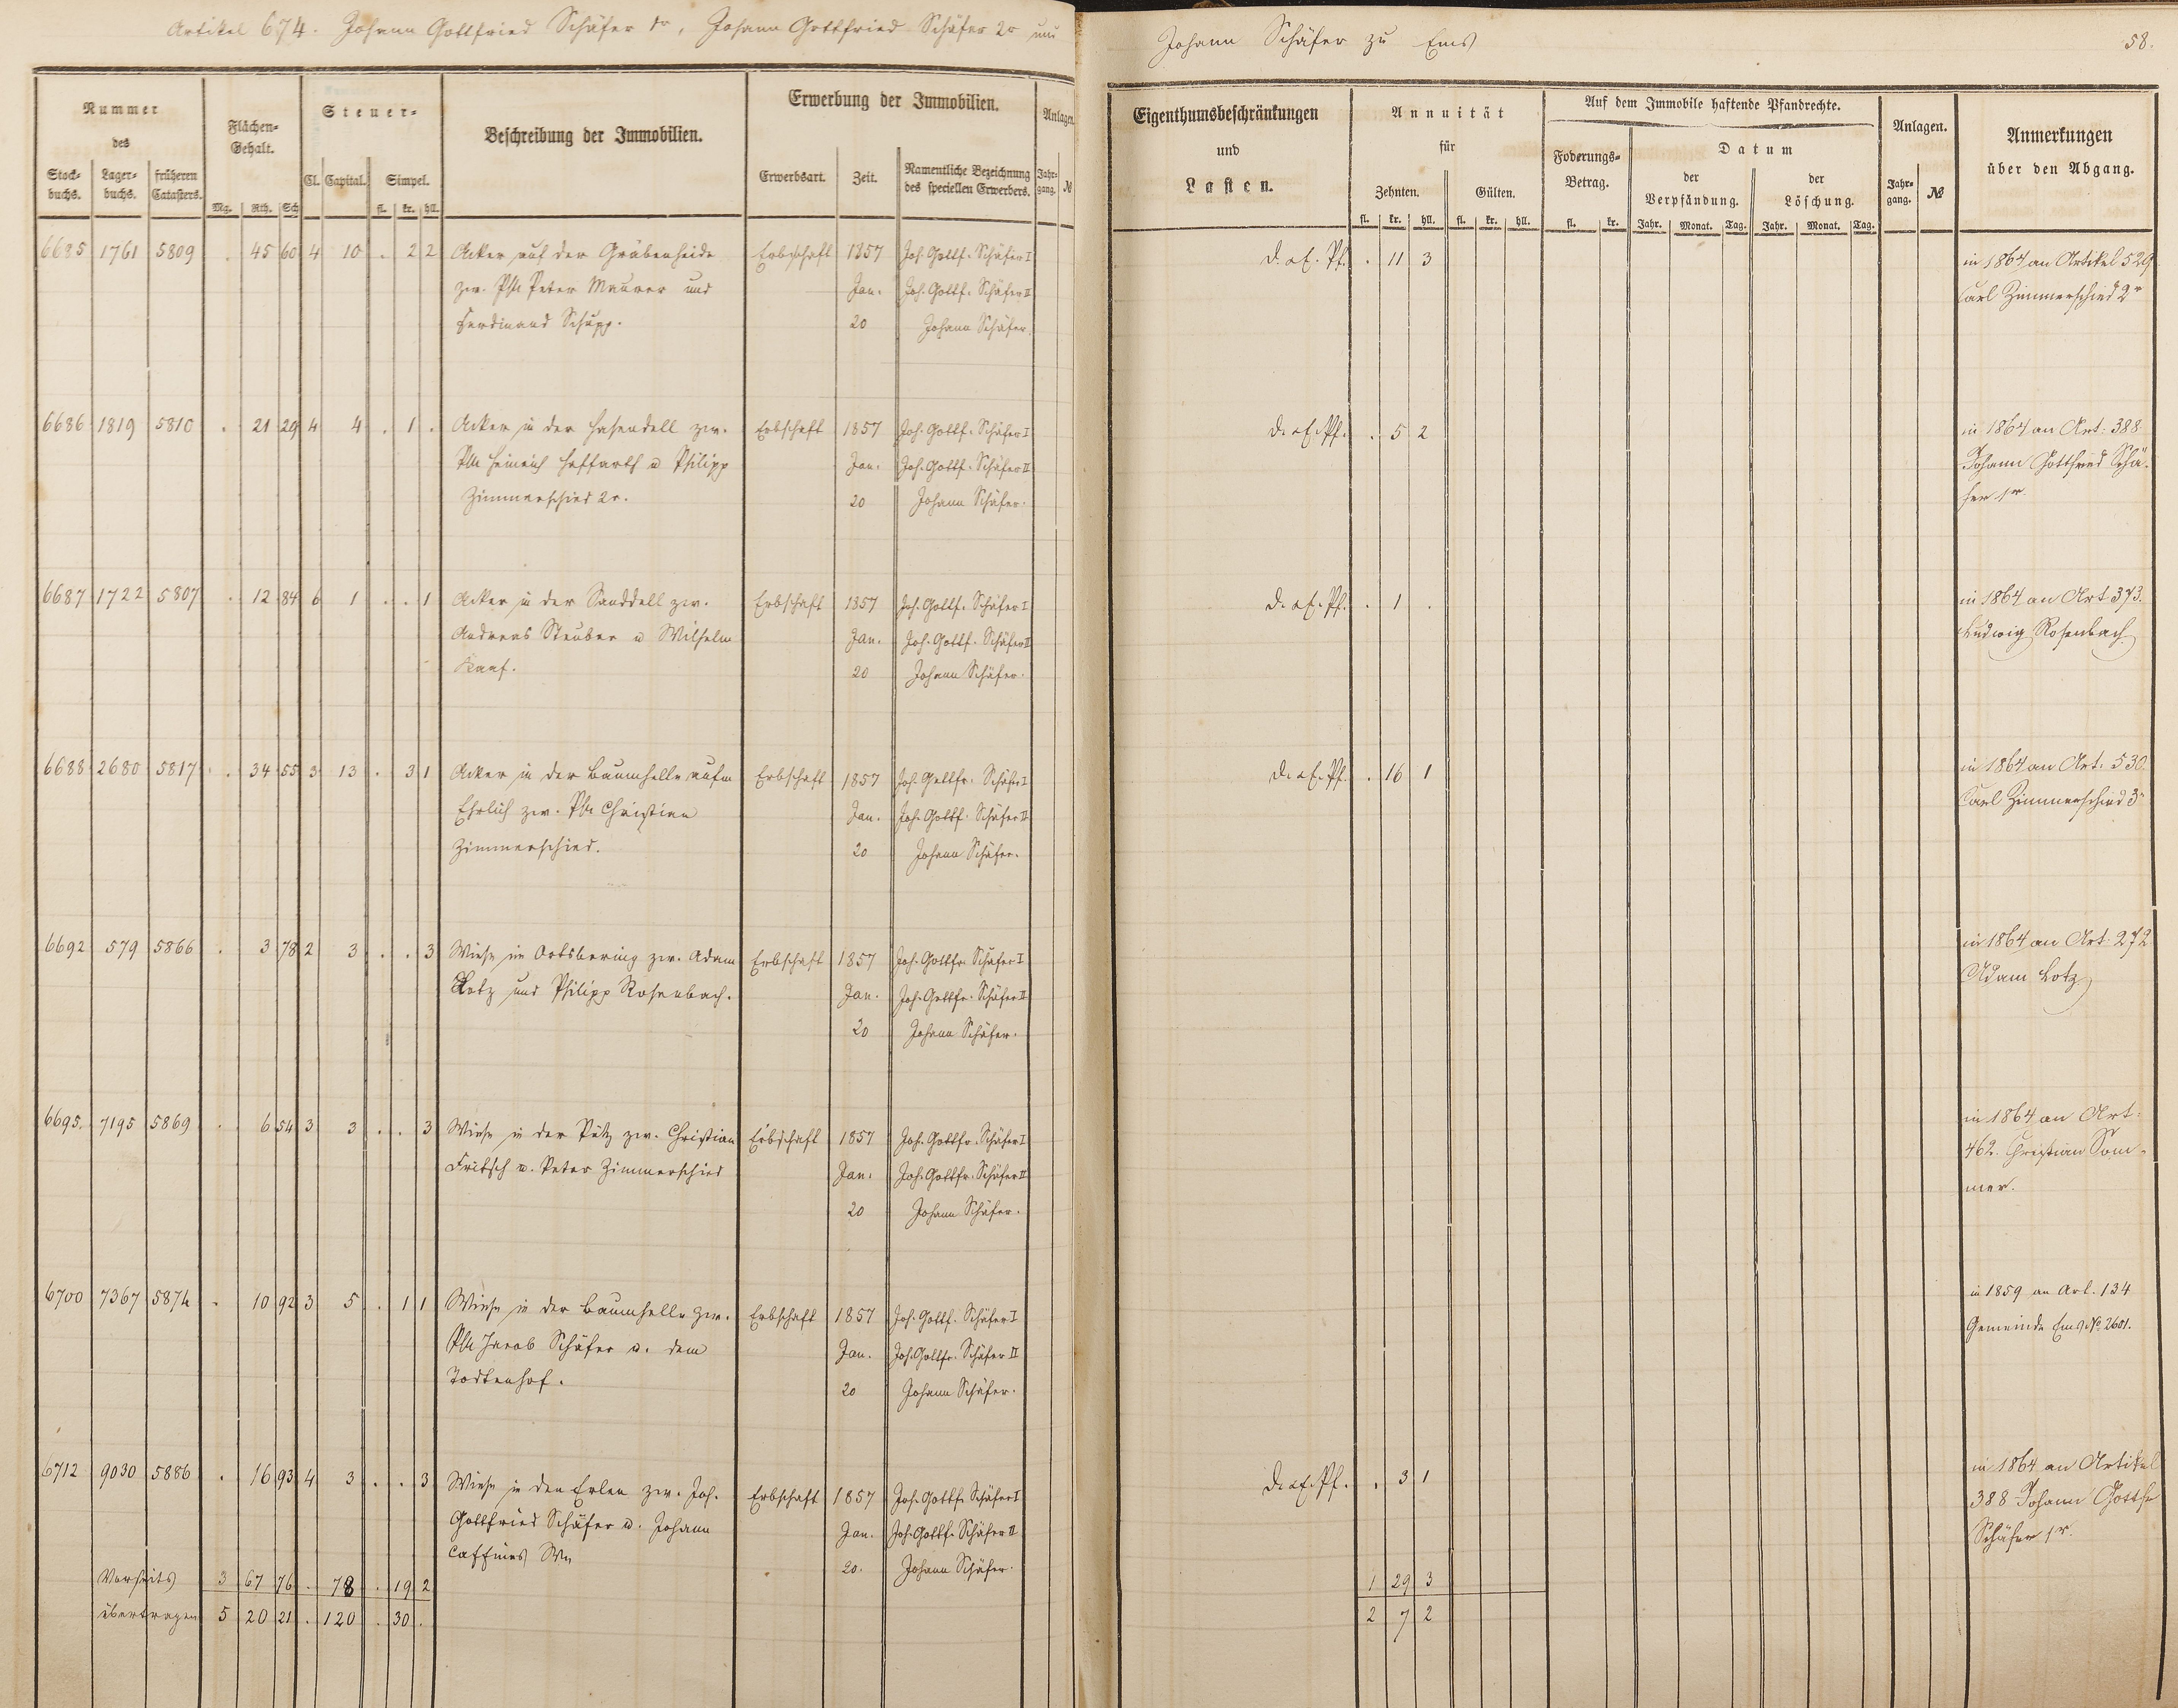 Artikel 674. Johann Gottfried Schäfer 1r, Johann Gottfried Schäfer 2r und
Johann Schäfer zu Ems
58.
Nummer
des
Stock-
buchs.
Lager-
buchs.
früheren
Catasters.
Flächen-
Gehalt.
Mg. Rth. Sch
Steuer-
Cl. Capital. Simpel.
fl. kr. hll.
Beschreibung der Immobilien.
Erwerbung der Immobilien.
Erwerbsart. Zeit.
Namentliche Bezeichnung
des speciellen Erwerbers.
Anlagen.
Jahr-
gang. №
Eigenthumsbeschränkungen
und
Lasten.
Annuität
für
Zehnten. Gülten.
fl. kr. hll. fl. kr. hll.
Auf dem Immobile haftende Pfandrechte.
Foderungs-
Betrag.
fl. kr.
Datum
der
Verpfändung.
der
Löschung.
Jahr. Monat. Tag. Jahr. Monat. Tag.
Anlagen.
Jahr-
gang. №
Anmerkungen
über den Abgang.
6685 1761 5809 . 45 60 4 10 . 2 2 Acker auf der Gräbenheide Erbschaft 1857 Joh. Gottf. Schäfer I d. a E. Pf. . 11 3 in 1864 an Artikel 529
zw. Pfl Peter Maurer und Jan. Joh. Gottf. Schäfer II Carl Zimmerschied 2r
Ferdinand Schupp. 20 Johann Schäfer.
6686 1819 5810 . 21 29 4 4 . 1 . Acker in der Hasendell zw. Erbschaft 1857 Joh. Gottf. Schäfer I d. a E. Pf. . 5 2 in 1864 an Art: 388
Pfl Heinrich Haffarth u Philipp Jan. Joh. Gottf. Schäfer II Johann Gottfried Schä-
Zimmerschied 2r. 20 Johann Schäfer. fer 1r.
6687 1722 5807 . 12 84 6 1 . . 1 Acker in der Sanddell zw. Erbschaft 1857 Joh. Gottf. Schäfer I d. a E. Pf. . 1 . in 1864 an Art 373.
Andreas Steuber u Wilhelm Jan. Joh. Gottf. Schäfer II Ludwig Rosenbach
Kauf. 20 Johann Schäfer.
6688 2680 5817 . 34 55 3 13 . 3 1 Acker in der Baumhelle aufm Erbschaft 1857 Joh. Gottfr. Schäfer I d. a E. Pf. . 16 1 in 1864 an Art: 530.
Ehrlich zw. Pfl Christian Jan. Joh. Gottf. Schäfer II Carl Zimmerschied 3r
Zimmerschied. 20 Johann Schäfer.
6692 579 5866 . 3 78 2 3 . . 3 Wiese im Ortsbering zw. Adam Erbschaft 1857 Joh. Gottfr. Schäfer I in 1864 an Art: 272
Lotz und Philipp Rosenbach. Jan. Joh. Gottfr. Schäfer II Adam Lotz
20 Johann Schäfer.
6695. 7195 5869 . 6 54 3 3 . . 3 Wiese in der Pütz zw. Christian Erbschaft 1857 Joh. Gottfr. Schäfer I in 1864 an Art:
Fritsch u. Peter Zimmerschied Jan. Joh. Gottfr. Schäfer II 462. Christian Som-
20 Johann Schäfer. mer.
6700 7367 5874 . 10 92 3 5 . 1 1 Wiese in der Baumhelle zw. Erbschaft 1857 Joh. Gottf. Schäfer I in 1859 an Art. 134
Pfl Jacob Schäfer u. dem Jan. Joh. Gottfr. Schäfer II Gemeinde Ems No 2601.
Todtenhof. 20 Johann Schäfer.
6712 9030 5886 . 16 93 4 3 . . 3 Wiese in den Erlen zw. Joh. Erbschaft 1857 Joh. Gottf. Schäfer I d. a E. Pf. . 3 1 in 1864 an Artikel
Gottfried Schäfer u. Johann Jan. Joh. Gottf. Schäfer II 388 Johann Gottfr
Caffines Wn 20. Johann Schäfer. Schäfer 1r.
Vorseits 3 67 76 . 78 . 19 2 1 29 3
übertragen 5 20 21 . 120 . 30 . 2 7 2